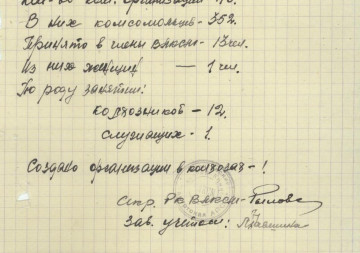 В них комсомольц- 352.
Принято в члены ВЛКСМ- 13 чел.
Из них женщин — 1 чел.
По роду занятии:
колхозников - 12.
служащих - 1.
Создано организации в колхозах - !
Скр. РК ВЛКСМ-
Зав. учетом: